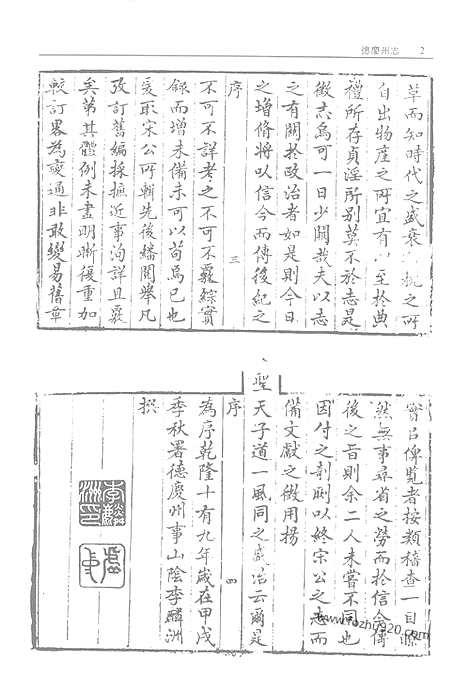 德慶州志 2
革而知時代之盛衰
自出物産之所宜有以至於典
禮所存貞淫所别莫不於志是
徵志爲可一日少闕哉夫以志
之有關於政治者如是則今日
之增脩將以信今而傳後紀之
序 三
不可不詳考之不可不覈綜實
錄而增未備未可以苟爲已也
爰取宋公所輯先後繙閱舉凡
改訂舊編採摭近事洵詳且覈
矣第其體例未盡明晰復重加
較訂畧為變通非敢變易舊章
實曰俾覽者按類稽查一目瞭
然無事尋省之勞而於信今傳
後之旨則余二人未嘗不同也
因付之剞劂以終宗公之志而
備文獻之徵用揚
聖天子道一風同之盛治云爾是
序 四
為序乾隆十有九年歲在甲戌
季秋署德慶州事山陰李麟洲
撰
李麟洲印
www.fozhu920.com